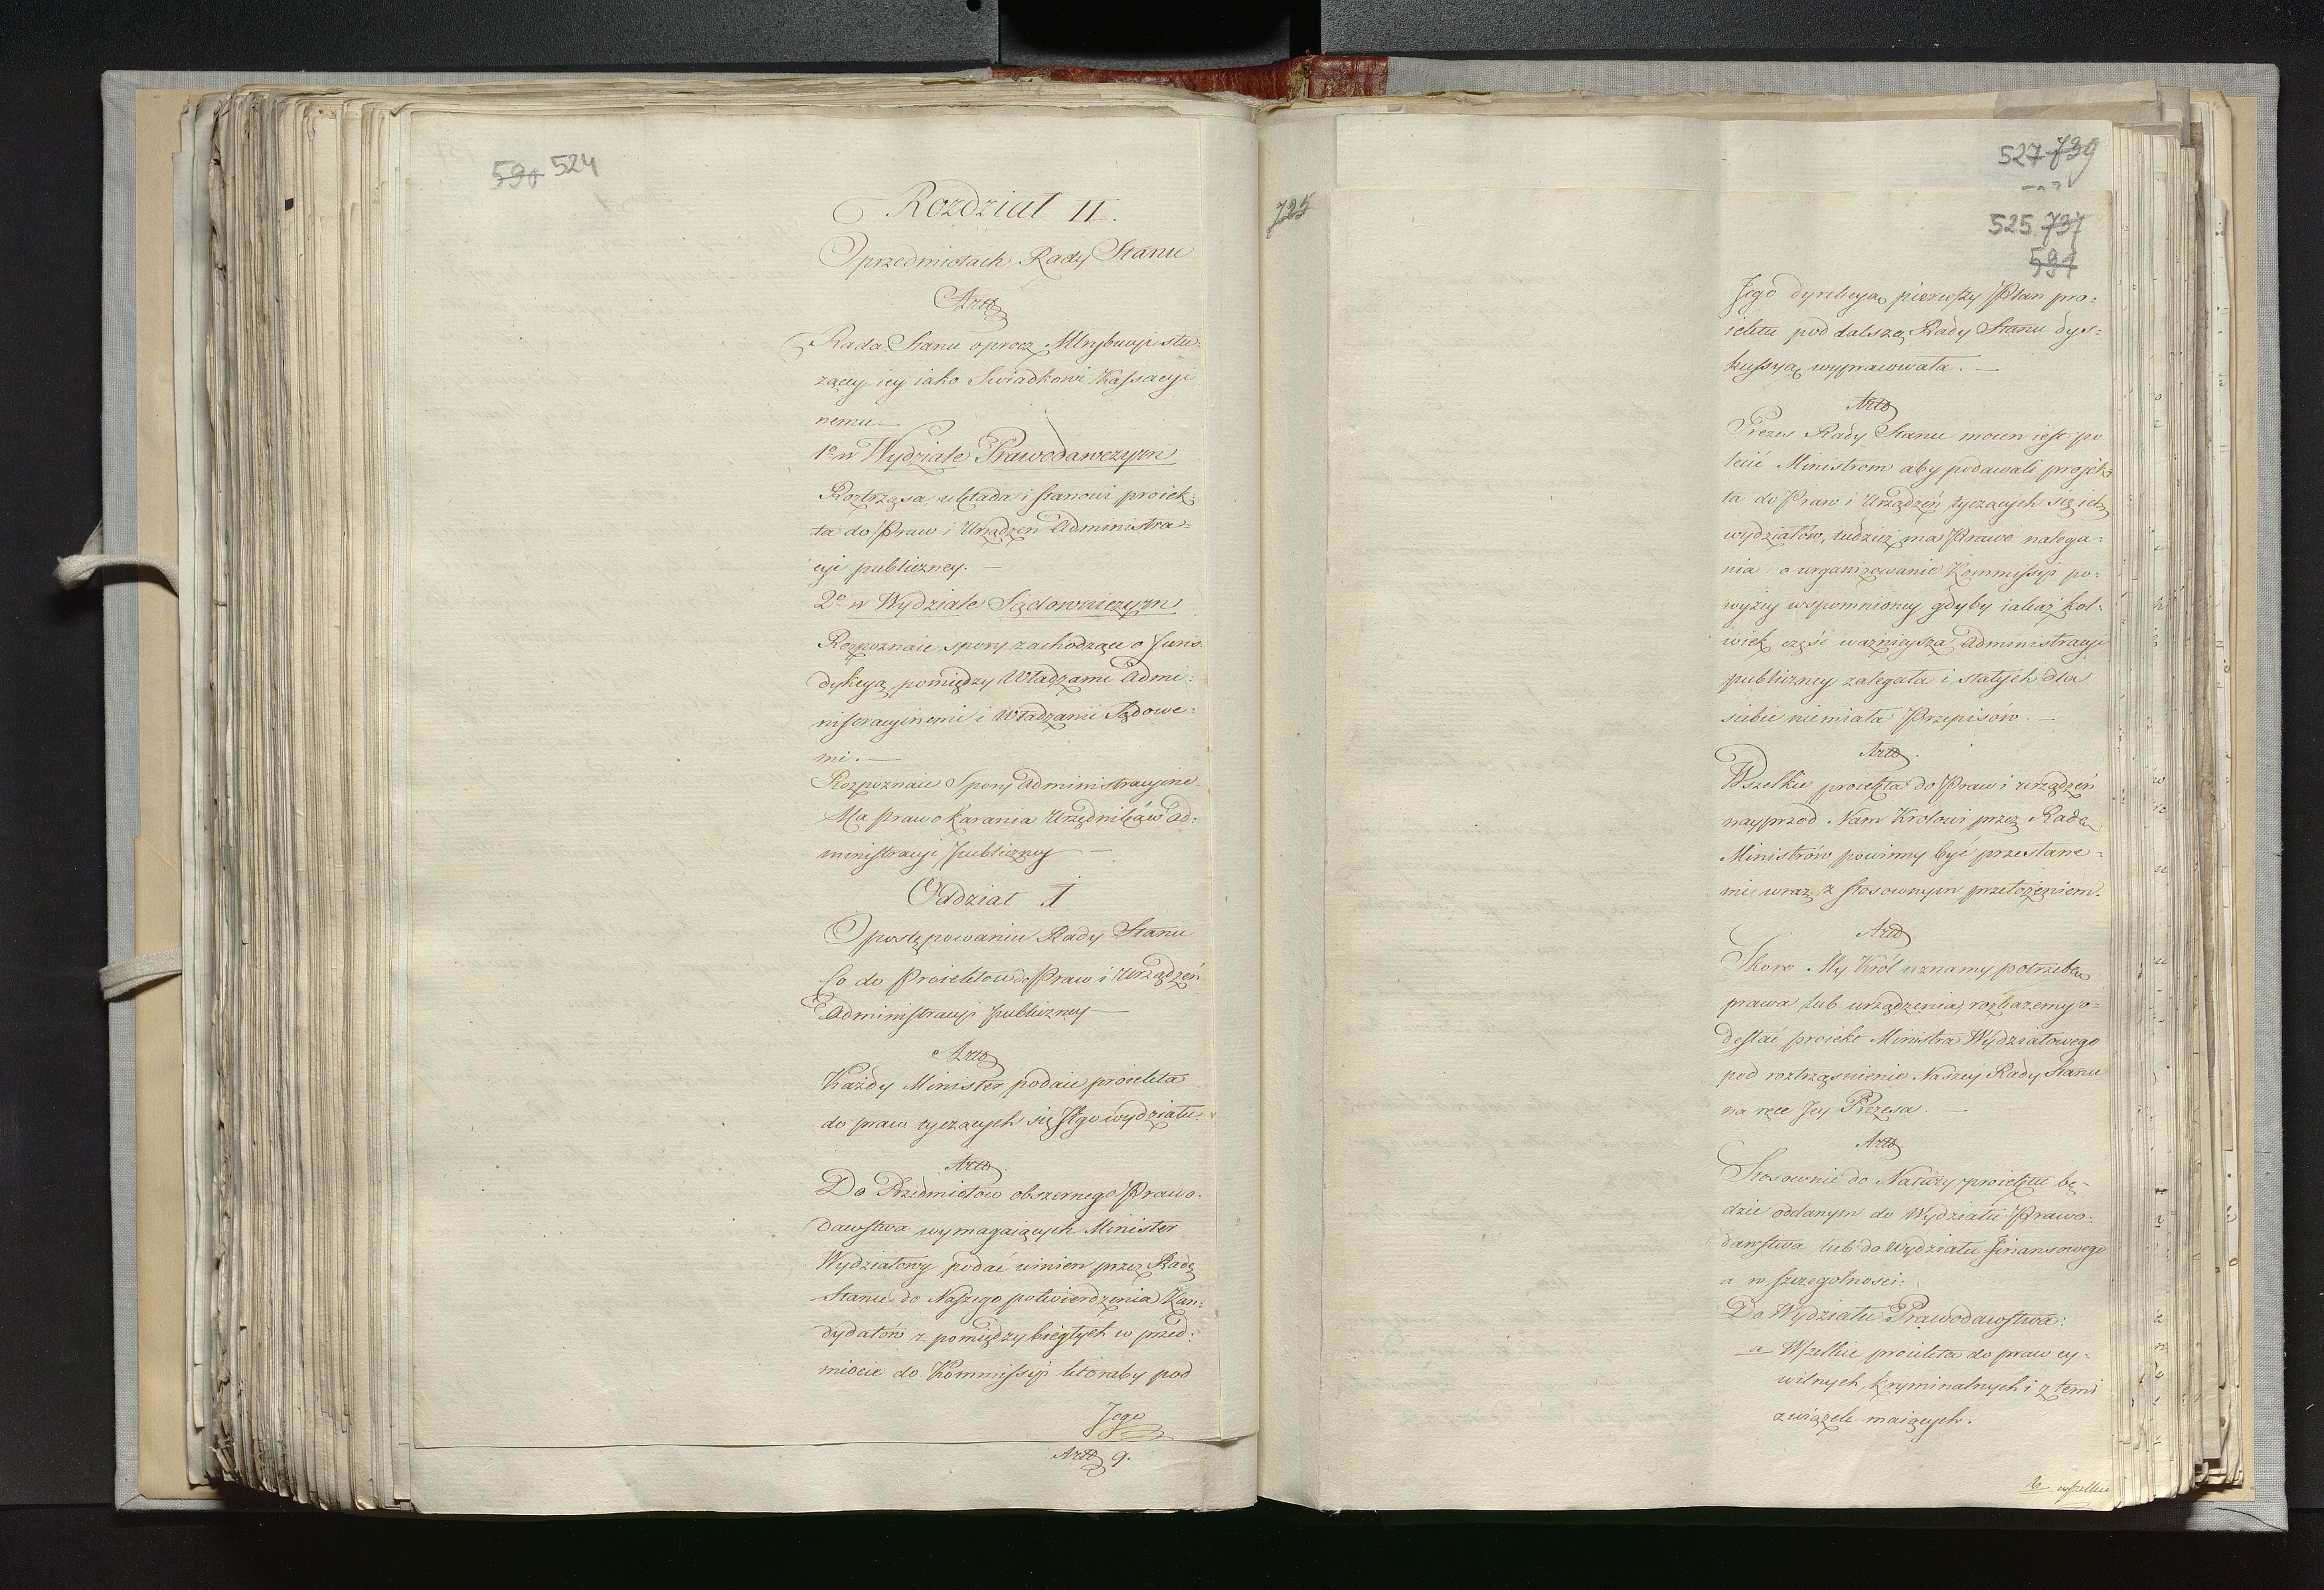 590 524
Rozdział II.
O przedmiotach Rady Stanu
Artt
Rada Stanu oprocz Attrybucyi słu-
zący iey iako Sądowi Kassacyi
nemu —
1º w Wydziale Prawodawczym
Roztrząsa układa i stanowi proiek-
ta do Praw i Urządzen Administra-
cyi publiczney. —
2º w Wydziale Sądowniczym
Rozpoznaie spory zachodzące o Juris-
dykcyą pomiędzy Władzami Admi-
nistracyinemi i Władzami Sądowe-
mi. —
Rozpoznaie Spory Administracyine
Ma prawo karania Urzędników Ad-
ministracyi Publiczney —
Oddział 1
O postępowaniu Rady Stanu
Co do Proiektow do Praw i Urządzeń
Administracyi Publiczney —
Artt
Każdy Minister podaie proiekta
do praw tyczących się Jego wydziału.
Artt
Do Przedmiotow obszernego Prawo-
dawstwa wymagaiących Minister
Wydziałowy podać winien przez Radę
Stanu do Naszego potwierdzenia Kan-
dydatów z pomiędzy biegłych w przed-
miocie do Kommissyi ktoraby pod
Jego
Artt 9.
725
527 739
525 737
591
Jego dyrekcyą pierwszy Plan pro-
iektu pod dalszą Rady Stanu dys-
kussyą wypracowała. —
Artt
Prezes Rady Stanu mocen iest po
lecić Ministrom aby podawali projek-
ta do Praw i Urządzeń tyczących się ich
wydziałów, tudzież ma Prawo nalega-
nia o urganizowanie Kommissyi po-
wyżey wspomnioney gdyby iakaż kol-
wiek część ważnieysza Administracyi
publiczney zalegała i stałych dla
siebie niemiała Przepisów. —
Artt
Wszelkie proiekta do Praw i urządzeń
nayprzod Nam Krolowi przez Radę
Ministrów powinny być przesłane-
mi wraz z stosownym przełożeniem.
Artt
Skoro My Król uznamy potrzebę
prawa lub urządzenia, rozkażemy o-
desłać proiekt Ministra Wydziałowego
pod roztrząsnienie Naszey Rady Stanu
na ręce Jey Prezesa. —
Artt
Stosownie do Natury proiektu bę-
dzie oddanym do Wydziału Prawo-
dawstwa, lub do Wydziału Finansowego
a w szczegolnosci:
Do Wydziału Prawodawstwa:
a Wszelkie proiekta do praw cy-
wilnych, kryminalnych i z temi
związek maiących.
b wszelkie